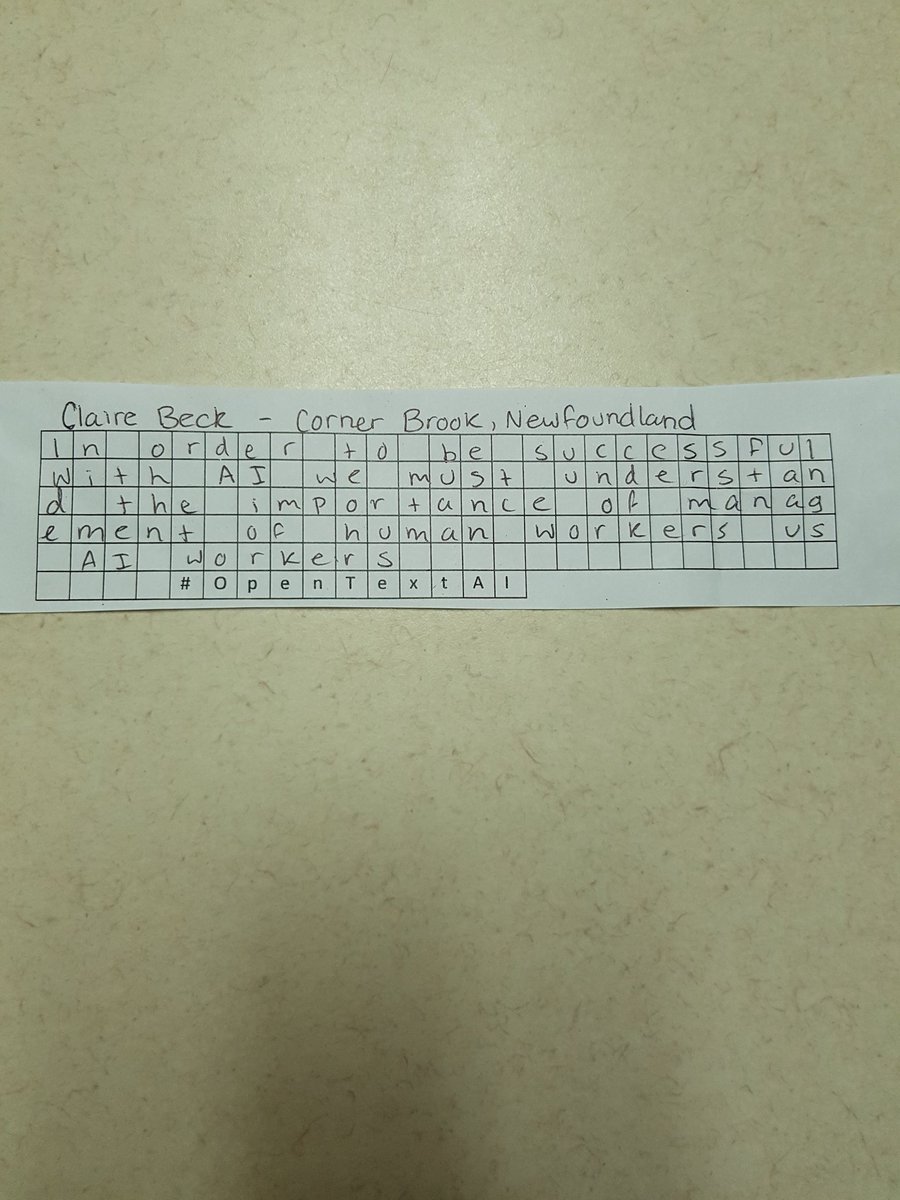 Claire Beck - Corner Brook, Newfoundland
In order to be successful
with AI we must understan
d the importance of manag
ement of human workers us
AI workers
#OpenTextAI